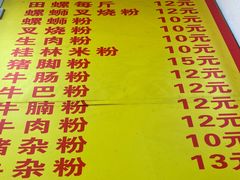 田螺每斤 12元
螺蛳叉烧粉 12元
螺蛳粉 10元
叉烧粉 10元
生肉粉 10元
桂林米粉 10元
猪脚粉 15元
牛肠粉 12元
牛巴粉 12元
牛腩粉 12元
牛肉粉 12元
猪杂粉 10元
牛杂粉 13元